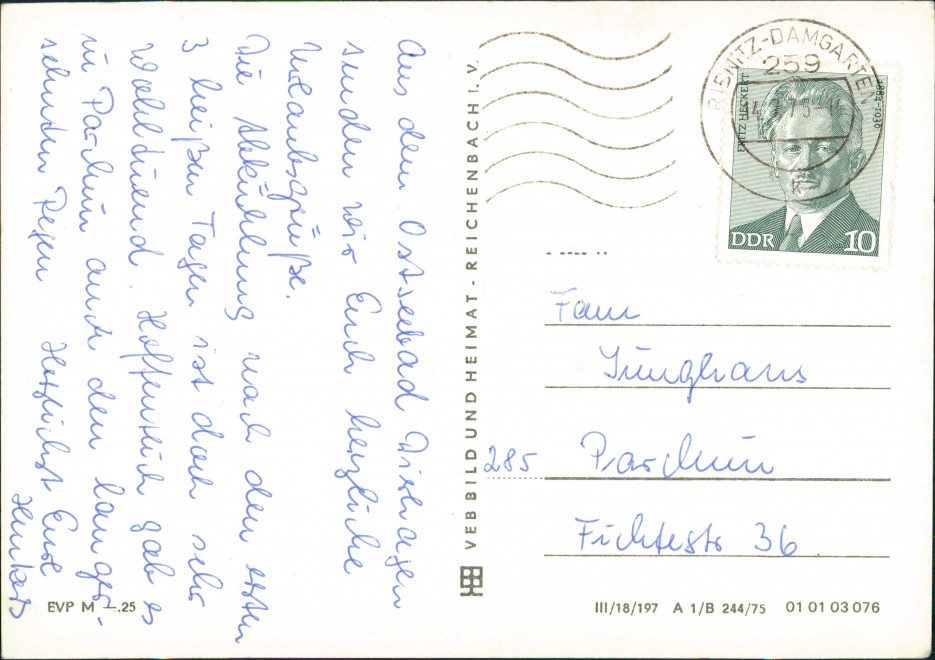 Aus dem Ostseebad Dierhagen
senden wir Euch herzliche
Urlaubsgrüße.
Die Abkühlung nach den ersten
3 heißen Tagen ist doch sehr
wohltuend. Hoffentlich gab es
in Parchim auch den langer-
sehnten Regen. Herzlichst Eure
VEB BILD UND HEIMAT - REICHENBACH I. V.
RIBNITZ-DAMGARTEN
259
k
FRITZ HECKERT
1884-1936
DDR 10
Fam
Junghans
285 Parchim
Fichtestr 36
EVP M —.25
III/18/197 A 1/B 244/75 01 01 03 076